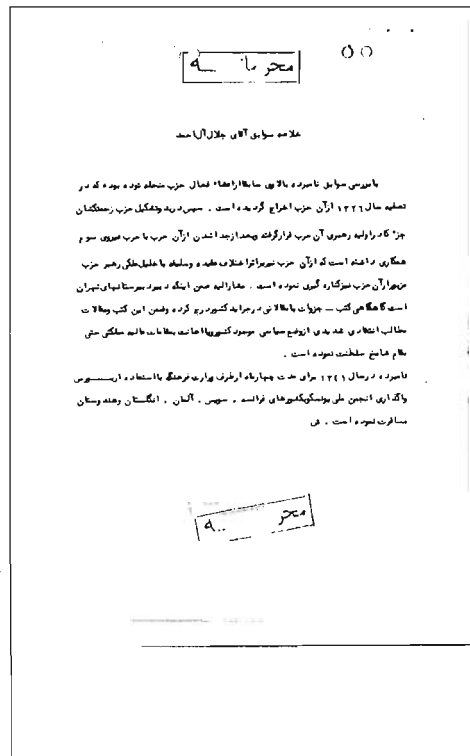 محرمانه
خلاصه سوابق آقای جلال آل احمد
با بررسی سوابق نامبرده بالا وی سابقا از اعضاء فعال حزب منحله توده بوده که در
تصفیه سال ۱۳۲۶ از آن حزب اخراج گردیده است . سپس در بدو تشکیل حزب زحمتکشان
جزء کادر اولیه رهبری آن حزب قرار گرفته و بعد از جدا شدن از آن حزب با حزب نیروی سوم
همکاری داشته است که از آن حزب نیز بر اثر اختلاف عقیده و سلیقه با خلیل ملکی رهبر حزب
مزبور از آن حزب نیز کناره گیری نموده است . مشارالیه ضمن اینکه دبیر دبیرستانهای تهران
است گاهگاهی کتب ـ جزوات یا مقالاتی در جراید کشور درج کرده و ضمن این کتب و مقالات
مطالب انتقادی شدیدی از وضع سیاسی موجود کشور و اهانت بمقامات عالیه مملکتی حتی
بمقام شامخ سلطنت نموده است .
نامبرده در سال ۱۳۴۱ برای مدت چهارماه از طرف وزارت فرهنگ با استفاده از بورس
واگذاری انجمن ملی یونسکو بکشورهای فرانسه . سویس . آلمان . انگلستان و هندوستان
مسافرت نموده است . ش
محرمانه